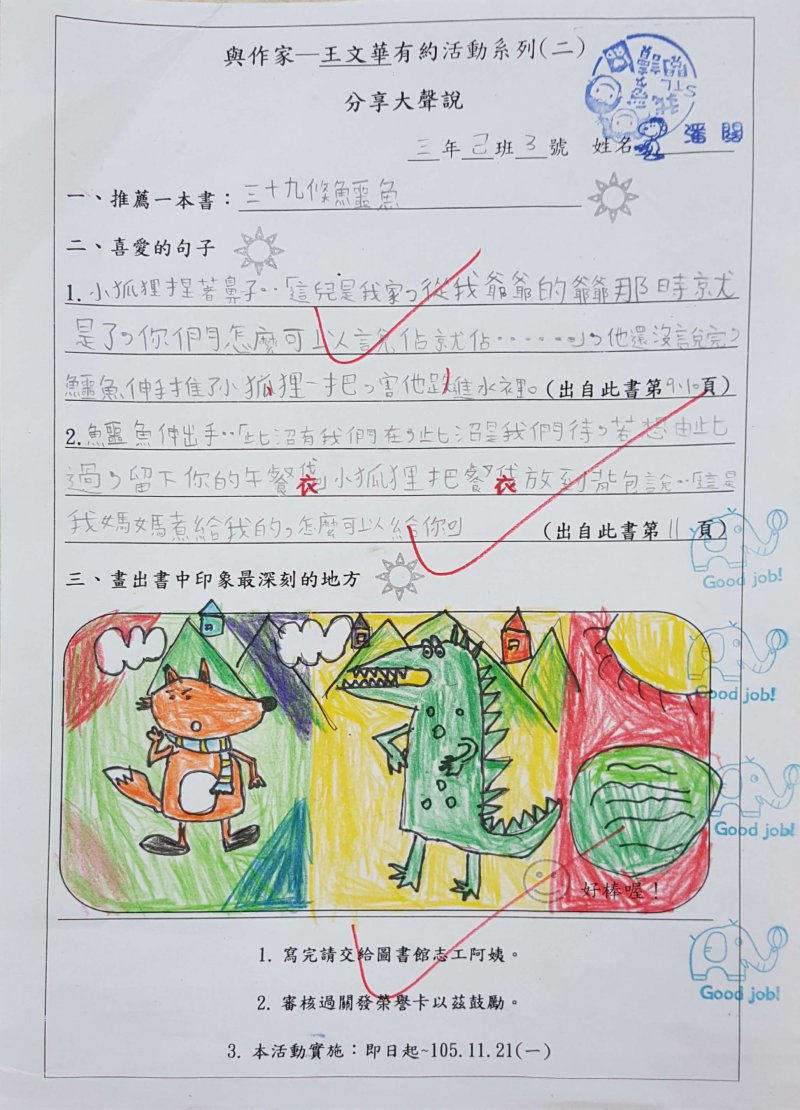 與作家—王文華有約活動系列(二)
分享大聲說
三年己班3號 姓名 潘閱
一、推薦一本書：三十九條鱷魚
二、喜愛的句子
1.小狐狸捏著鼻子：「這兒是我家，從我爺爺的爺爺那時就
是了，你們怎麼可以說佔就佔……」，他還沒說完，
鱷魚伸手推了小狐狸一把，害他跌進水裡。(出自此書第9、10頁)
2.鱷魚伸出手：「此沼有我們在，此沼是我們待，若想由此
過，留下你的午餐袋」小狐狸把餐袋放到背包說：「這是
我媽媽煮給我的，怎麼可以給你」 (出自此書第11頁)
三、畫出書中印象最深刻的地方
Good job!
Good job!
Good job!
好棒喔！
1. 寫完請交給圖書館志工阿姨。
2. 審核過關發榮譽卡以茲鼓勵。
Good job!
3. 本活動實施：即日起~105.11.21(一)